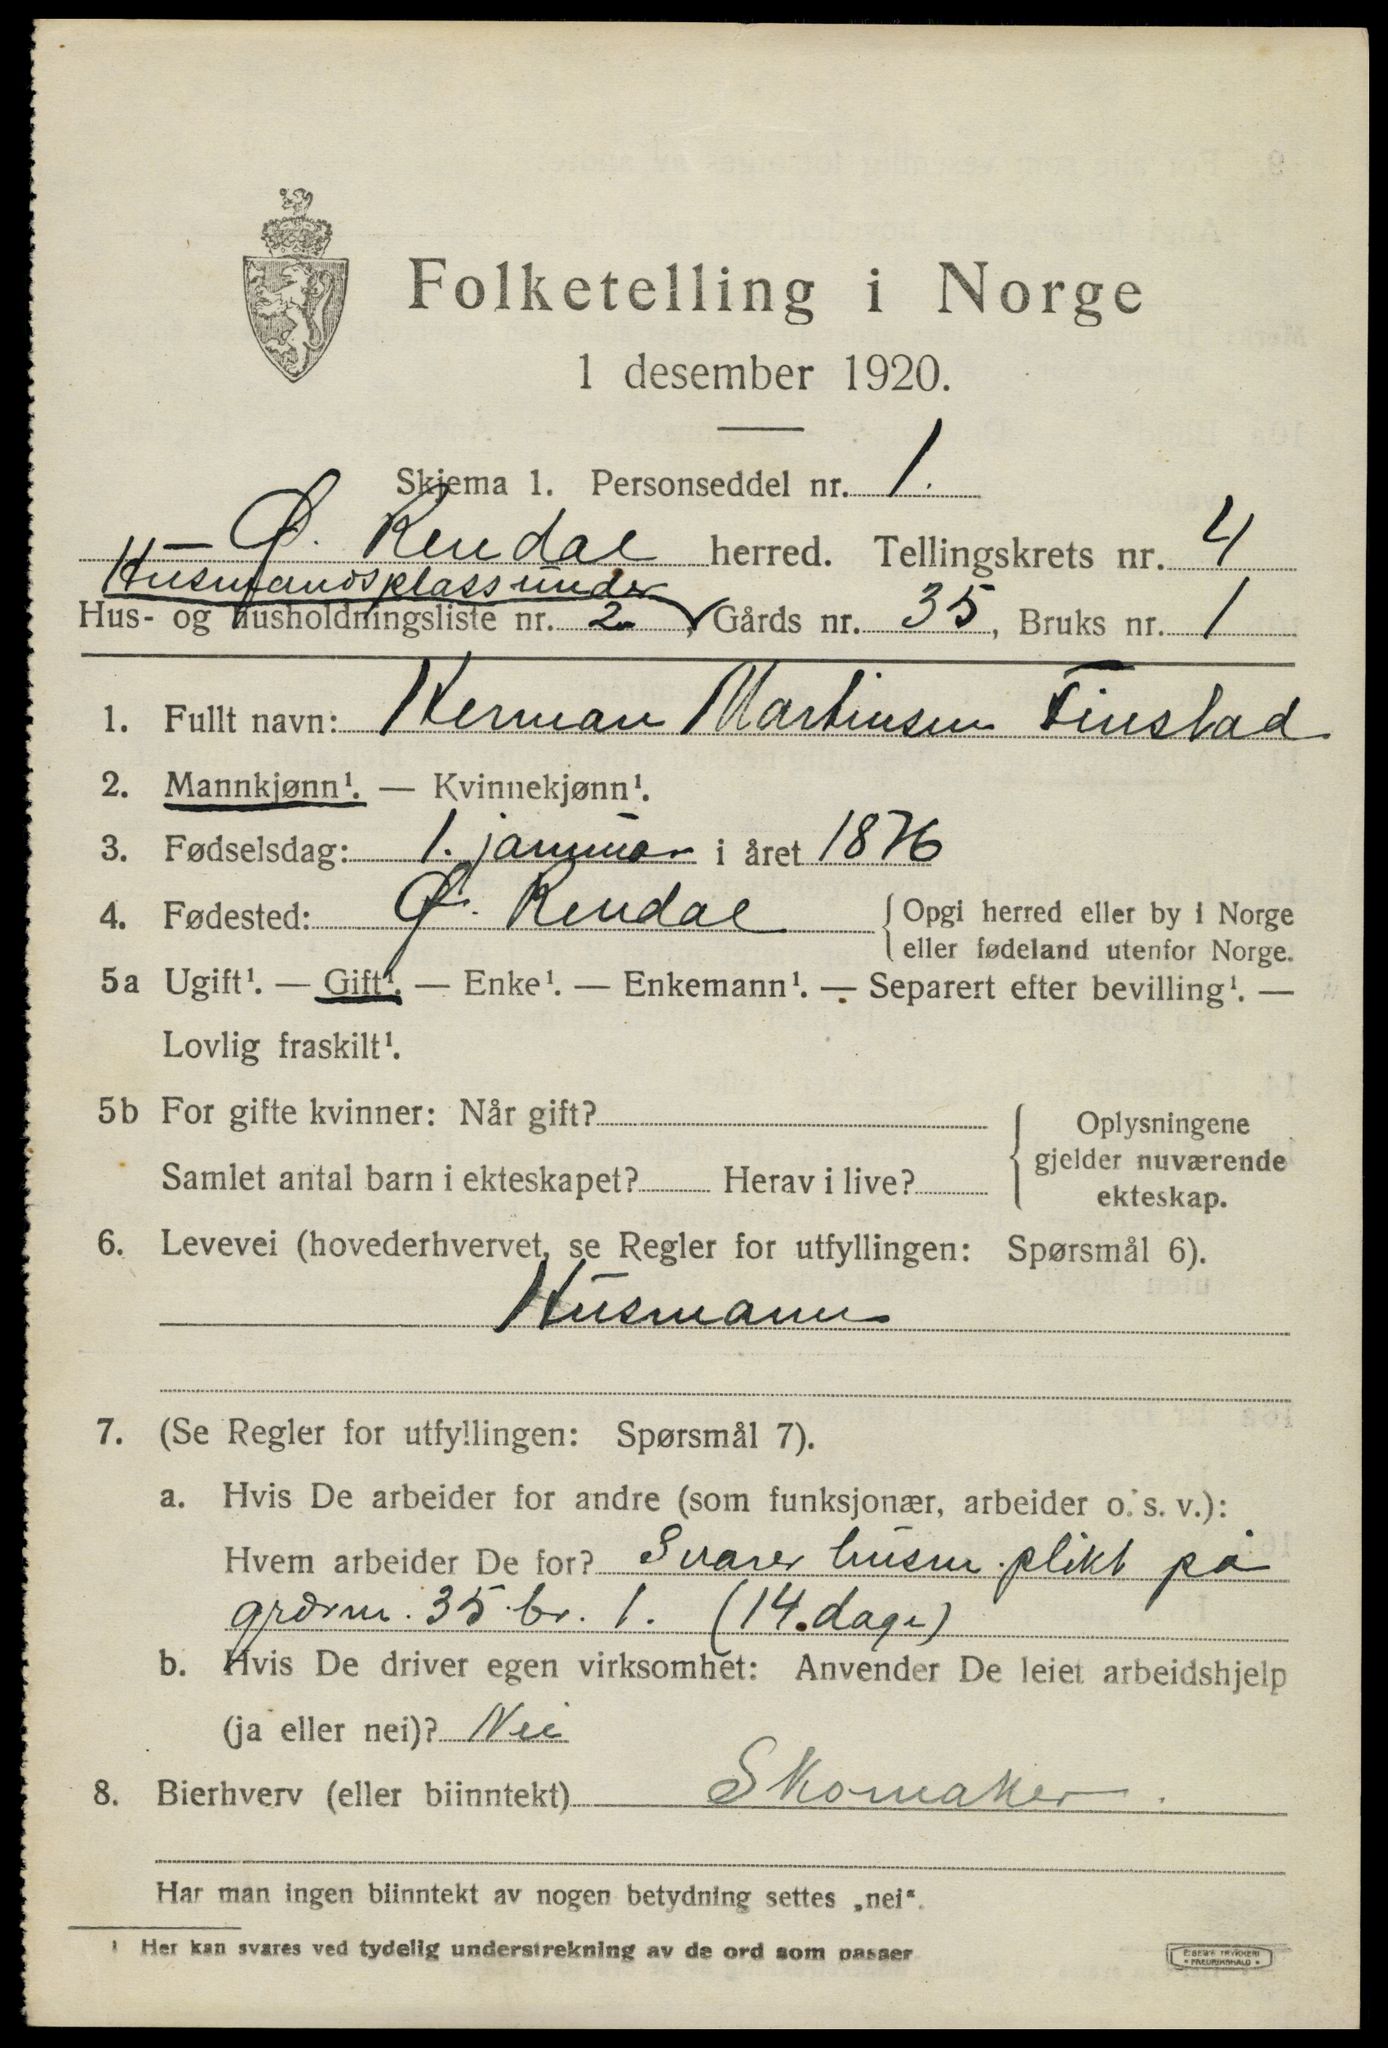 Folketelling i Norge
1 desember 1920.
Skjema 1. Personseddel nr. 1.
Ø. Rendal herred. Tellingskrets nr. 4
Husmandsplass under
Hus- og husholdningsliste nr. 2, Gårds nr. 35, Bruks nr. 1
1. Fullt navn: Herman Martinsen Finstad
2. Mannkjønn¹. — Kvinnekjønn¹.
3. Fødselsdag: 1. januar i året 1876
4. Fødested: Ø. Rendal { Opgi herred eller by i Norge
eller fødeland utenfor Norge.
5a Ugift¹. — Gift¹. — Enke¹. — Enkemann¹. — Separert efter bevilling¹. —
Lovlig fraskilt¹.
5b For gifte kvinner: Når gift? { Oplysningene
gjelder nuværende
Samlet antal barn i ekteskapet? Herav i live? ekteskap.
6. Levevei (hovederhvervet, se Regler for utfyllingen: Spørsmål 6).
Husmann
7. (Se Regler for utfyllingen: Spørsmål 7).
a. Hvis De arbeider for andre (som funksjonær, arbeider o. s. v.):
Hvem arbeider De for? Svarer husm. plikt på
grdsnr. 35 br. 1. (14. dage)
b. Hvis De driver egen virksomhet: Anvender De leiet arbeidshjelp
(ja eller nei)? Nei
8. Bierhverv (eller biinntekt) Skomaker.
Har man ingen biinntekt av nogen betydning settes „nei“.
¹ Her kan svares ved tydelig understrekning av de ord som passer
E. SEM'S TRYKKERI
* FREDRIKSHALD *